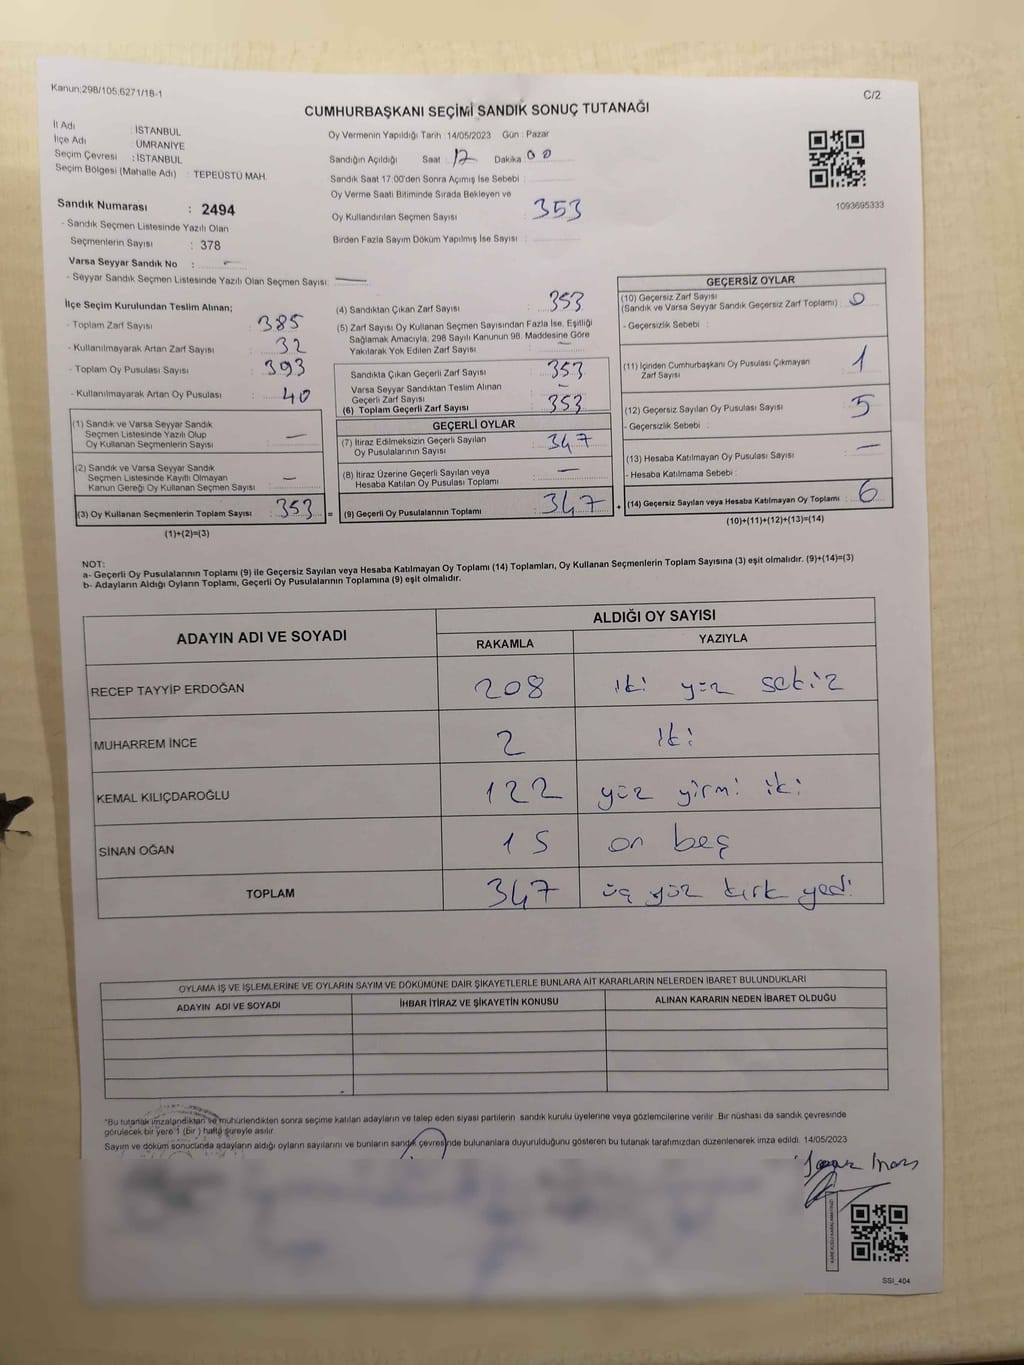 Kanun;298/105,6271/18-1
C/2
CUMHURBAŞKANI SEÇİMİ SANDIK SONUÇ TUTANAĞI
İl Adı : İSTANBUL
İlçe Adı : ÜMRANİYE
Seçim Çevresi : İSTANBUL
Seçim Bölgesi (Mahalle Adı) : TEPEÜSTÜ MAH.
Sandık Numarası : 2494
- Sandık Seçmen Listesinde Yazılı Olan
Seçmenlerin Sayısı : 378
Varsa Seyyar Sandık No : –
- Seyyar Sandık Seçmen Listesinde Yazılı Olan Seçmen Sayısı: —
Oy Vermenin Yapıldığı Tarih : 14/05/2023 Gün : Pazar
Sandığın Açıldığı Saat : 17 Dakika : 00
Sandık Saat 17.00'den Sonra Açımış İse Sebebi :
Oy Verme Saati Bitiminde Sırada Bekleyen ve
Oy Kullandırılan Seçmen Sayısı : 353
Birden Fazla Sayım Döküm Yapılmış İse Sayısı :
1093695333
İlçe Seçim Kurulundan Teslim Alınan;
- Toplam Zarf Sayısı : 385
- Kullanılmayarak Artan Zarf Sayısı : 32
- Toplam Oy Pusulası Sayısı : 393
- Kullanılmayarak Artan Oy Pusulası : 40
(1) Sandık ve Varsa Seyyar Sandık
Seçmen Listesinde Yazılı Olup
Oy Kullanan Seçmenlerin Sayısı : —
(2) Sandık ve Varsa Seyyar Sandık
Seçmen Listesinde Kayıtlı Olmayan
Kanun Gereği Oy Kullanan Seçmen Sayısı : —
(3) Oy Kullanan Seçmenlerin Toplam Sayısı : 353
(1)+(2)=(3)
(4) Sandıktan Çıkan Zarf Sayısı : 353
(5) Zarf Sayısı Oy Kullanan Seçmen Sayısından Fazla İse, Eşitliği
Sağlamak Amacıyla, 298 Sayılı Kanunun 98. Maddesine Göre
Yakılarak Yok Edilen Zarf Sayısı : —
Sandıkta Çıkan Geçerli Zarf Sayısı : 353
Varsa Seyyar Sandıktan Teslim Alınan
Geçerli Zarf Sayısı : –
(6) Toplam Geçerli Zarf Sayısı : 353
GEÇERLİ OYLAR
(7) İtiraz Edilmeksizin Geçerli Sayılan
Oy Pusulalarının Sayısı : 347
(8) İtiraz Üzerine Geçerli Sayılan veya
Hesaba Katılan Oy Pusulası Toplamı : —
= (9) Geçerli Oy Pusulalarının Toplamı : 347 +
GEÇERSİZ OYLAR
(10) Geçersiz Zarf Sayısı
(Sandık ve Varsa Seyyar Sandık Geçersiz Zarf Toplamı) : 0
- Geçersizlik Sebebi :
(11) İçinden Cumhurbaşkanı Oy Pusulası Çıkmayan
Zarf Sayısı : 1
(12) Geçersiz Sayılan Oy Pusulası Sayısı : 5
- Geçersizlik Sebebi :
(13) Hesaba Katılmayan Oy Pusulası Sayısı : —
- Hesaba Katılmama Sebebi :
(14) Geçersiz Sayılan veya Hesaba Katılmayan Oy Toplamı : 6
(10)+(11)+(12)+(13)=(14)
NOT:
a- Geçerli Oy Pusulalarının Toplamı (9) ile Geçersiz Sayılan veya Hesaba Katılmayan Oy Toplamı (14) Toplamları, Oy Kullanan Seçmenlerin Toplam Sayısına (3) eşit olmalıdır. (9)+(14)=(3)
b- Adayların Aldığı Oyların Toplamı, Geçerli Oy Pusulalarının Toplamına (9) eşit olmalıdır.
ADAYIN ADI VE SOYADI ALDIĞI OY SAYISI
RAKAMLA YAZIYLA
RECEP TAYYİP ERDOĞAN 208 iki yüz sekiz
MUHARREM İNCE 2 iki
KEMAL KILIÇDAROĞLU 122 yüz yirmi iki
SİNAN OĞAN 15 on beş
TOPLAM 347 üç yüz kırk yedi
OYLAMA İŞ VE İŞLEMLERİNE VE OYLARIN SAYIM VE DÖKÜMÜNE DAİR ŞİKAYETLERLE BUNLARA AİT KARARLARIN NELERDEN İBARET BULUNDUKLARI
ADAYIN ADI VE SOYADI İHBAR İTİRAZ VE ŞİKAYETİN KONUSU ALINAN KARARIN NEDEN İBARET OLDUĞU
*Bu tutanak imzalandıktan ve mühürlendikten sonra seçime katılan adayların ve talep eden siyasi partilerin sandık kurulu üyelerine veya gözlemcilerine verilir. Bir nüshası da sandık çevresinde
görülecek bir yere 1 (bir) hafta süreyle asılır.
Sayım ve döküm sonucunda adayların aldığı oyların sayılarını ve bunların sandık çevresinde bulunanlara duyurulduğunu gösteren bu tutanak tarafımızdan düzenlenerek imza edildi. 14/05/2023
SSI_404